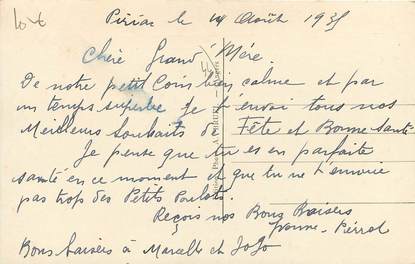 10 €
Piriac le 14 Août 1935
Chère Grand Mère
De notre petit Coin bien calme et par
un temps superbe je t'envoi tous nos
Meilleurs Souhaits de Fête et Bonne Santé
Je pense que tu es en parfaite
santé en ce moment et que tu ne t'ennuie
pas trop des Petits
Reçois nos Bons Baisers
Bons baisers à Marcelle et JoJo